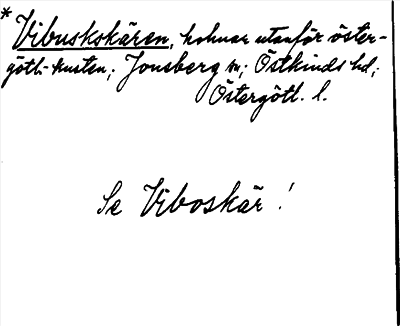 * Vibuskskären, holmar utanför öster-
götl.-kusten; Jonsberg sn; Östkinds hd;
Östergötl. l.
Se Viboskär!